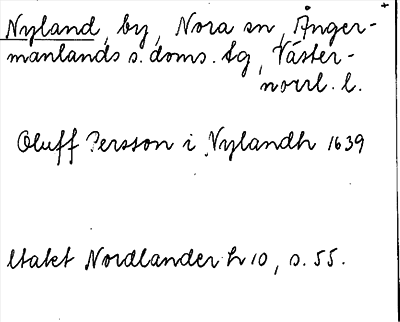 Nyland, by, Nora sn, Ånger-
manlands s. doms. tg, Väster-
norrl. l.
Oluff Persson i Nylandh 1639
Utakt Nordlander h 10, s. 55.